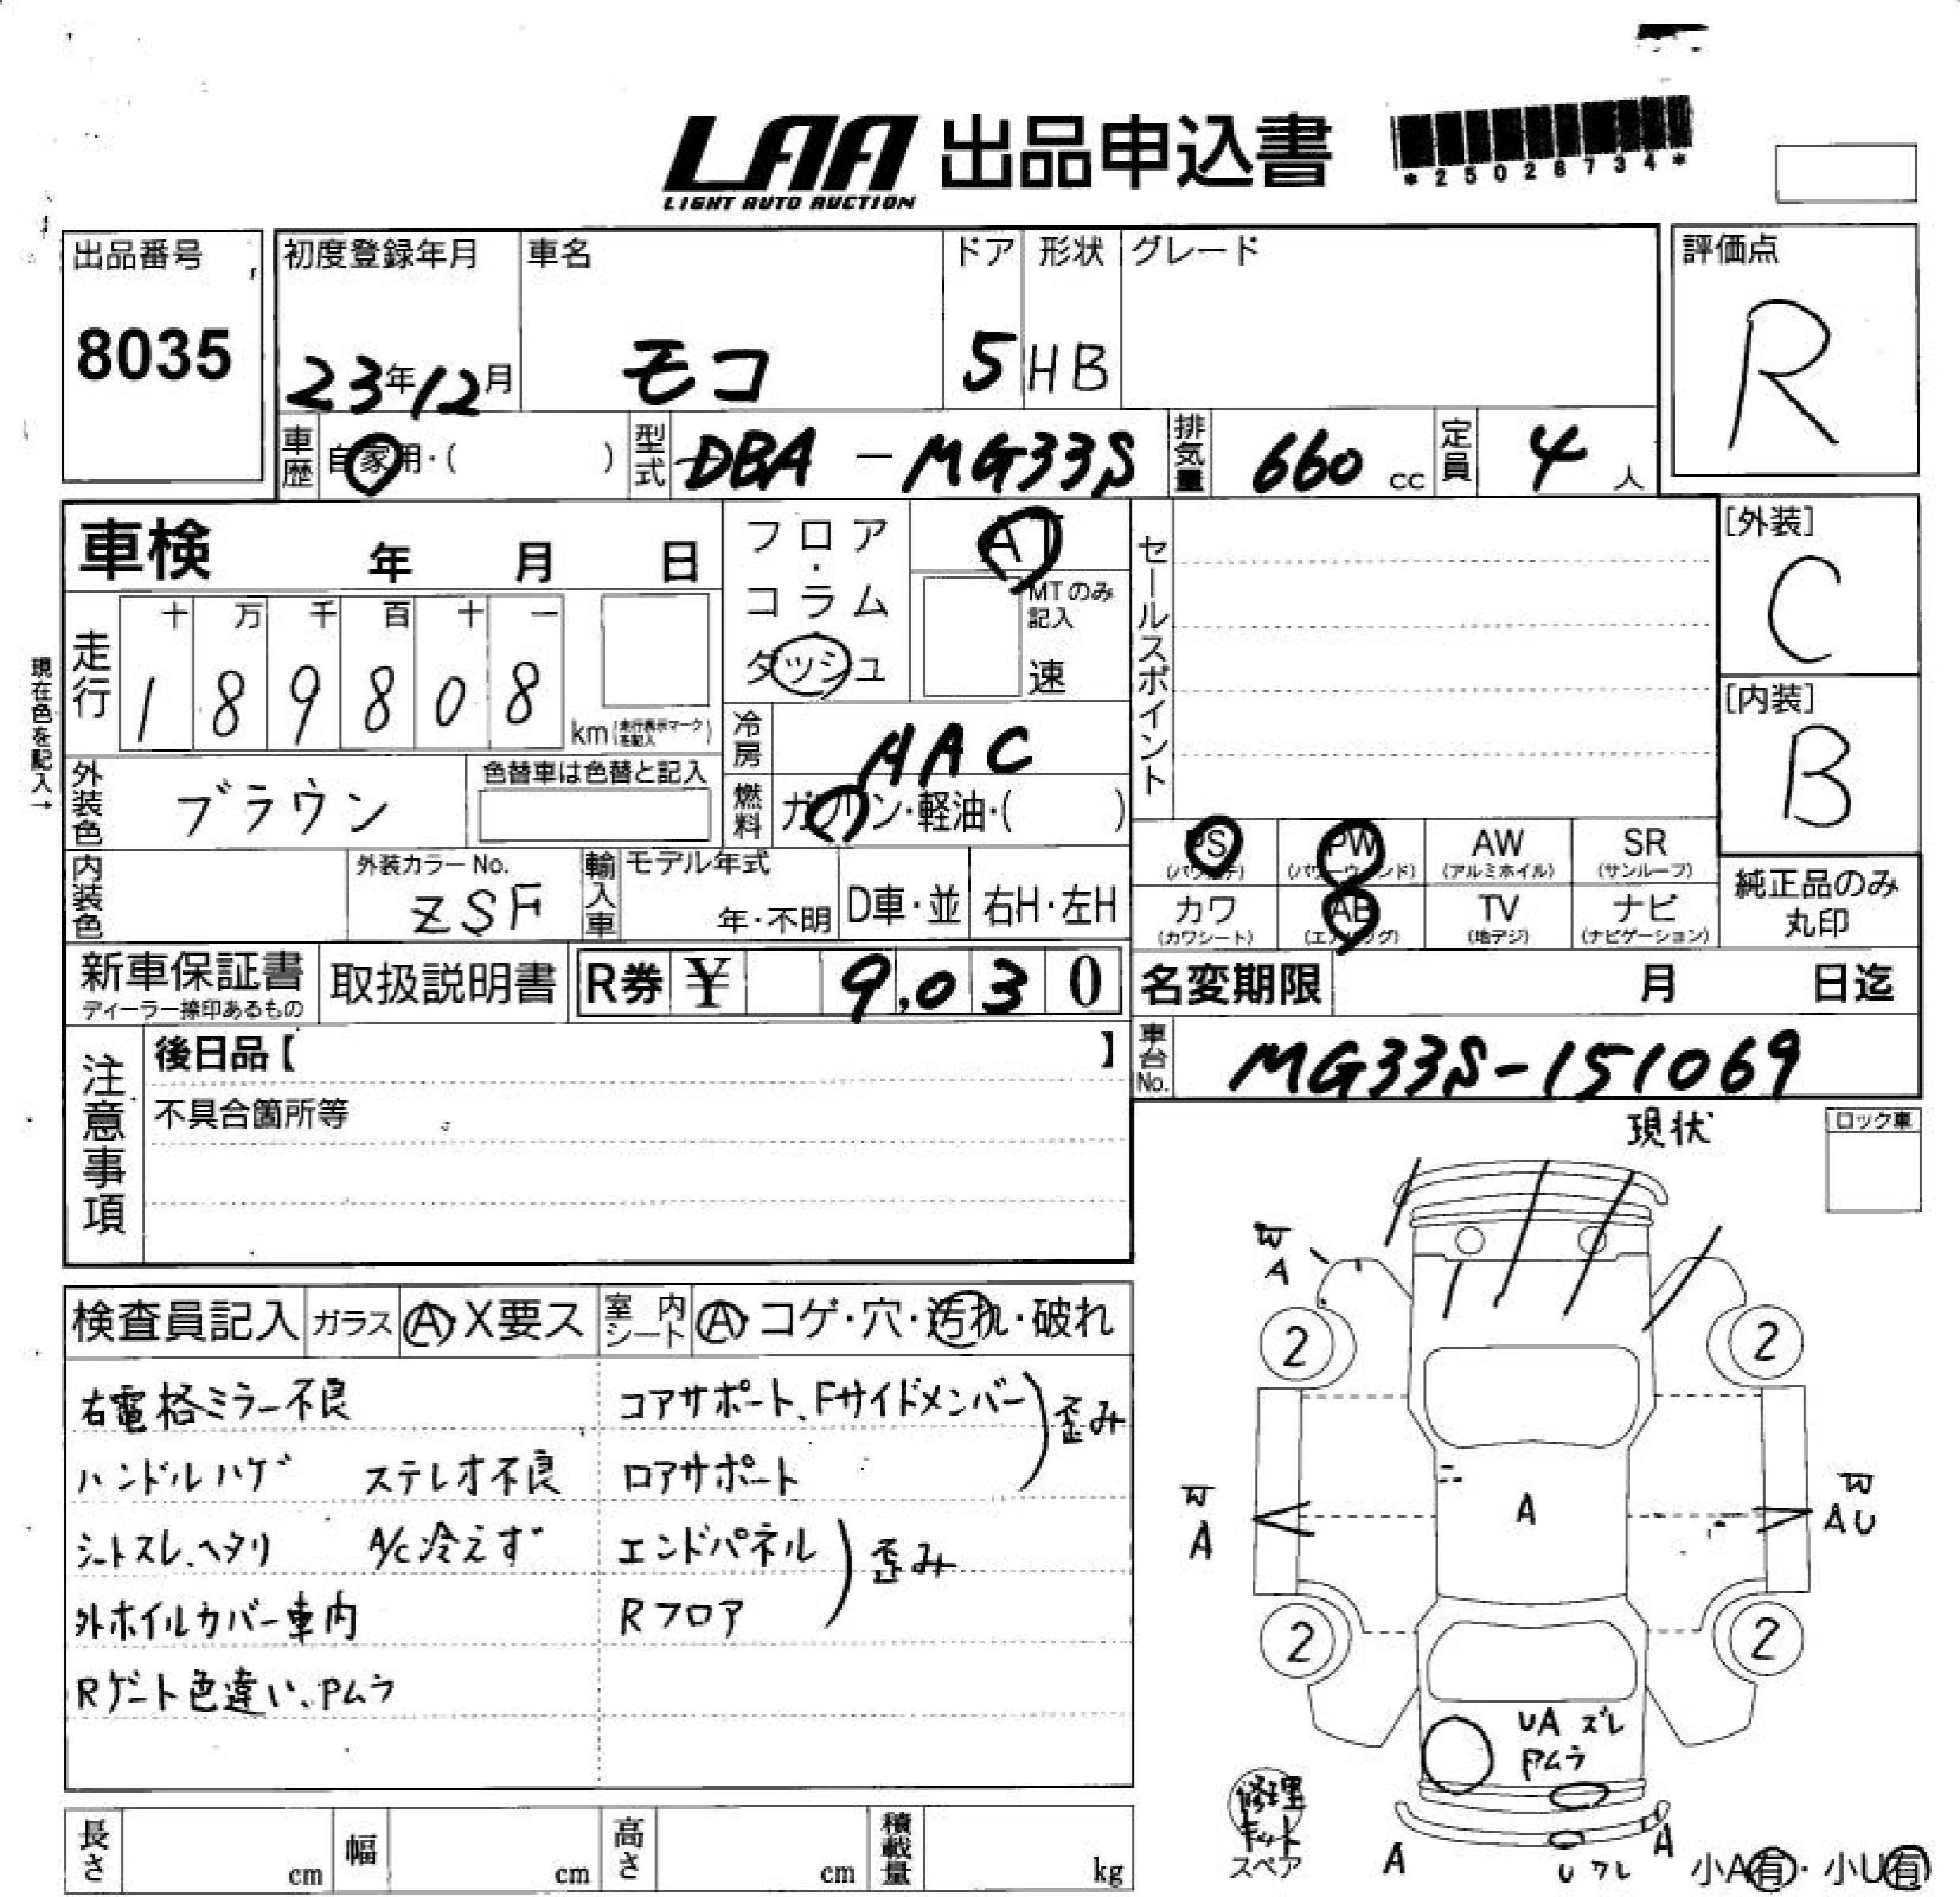 LAA 出品申込書
LIGHT AUTO AUCTION
*25026734*
出品番号
8035
初度登録年月
23年12月
車名
モコ
ドア
5
形状
HB
グレード
評価点
R
車歴
自家用・( )
型式
DBA-MG33S
排気量
660 cc
定員
4 人
車検 年 月 日
フロア・コラム・ダッシュ
AT
MTのみ記入
速
セールスポイント
[外装]
C
[内装]
B
現在色を記入→
走行
十 万 千 百 十 一
1 8 9 8 0 8
km(走行表示マークを記入)
冷房
AAC
外装色
ブラウン
色替車は色替と記入
燃料
ガソリン・軽油・( )
PS PW AW SR
(パワステ) (パワーウィンド) (アルミホイル) (サンルーフ)
カワ AB TV ナビ
(カワシート) (エアバッグ) (地デジ) (ナビゲーション)
純正品のみ
丸印
内装色
外装カラーNo.
ZSF
輸入車
モデル年式
年・不明
D車・並
右H・左H
新車保証書
ディーラー捺印あるもの
取扱説明書
R券 ¥ 9,030
名変期限 月 日迄
注意事項
後日品【 】
不具合箇所等
車台No.
MG33S-151069
現状
ロック車
検査員記入 ガラス A・X要ス 室内シート A・コゲ・穴・汚れ・破れ
右電格ミラー不良
ハンドルハゲ ステレオ不良
シートスレ、ヘタリ A/C冷えず
外ホイルカバー車内
Rゲート色違い、Pムラ
コアサポート、Fサイドメンバー
ロアサポート
歪み
エンドパネル
Rフロア
歪み
W
A
2 2
W
A
A
W
AU
2 2
UA ズレ
Pムラ
修理
キット
スペア
A
U ワレ
A
小A有・小U有
長さ cm 幅 cm 高さ cm 積載量 kg